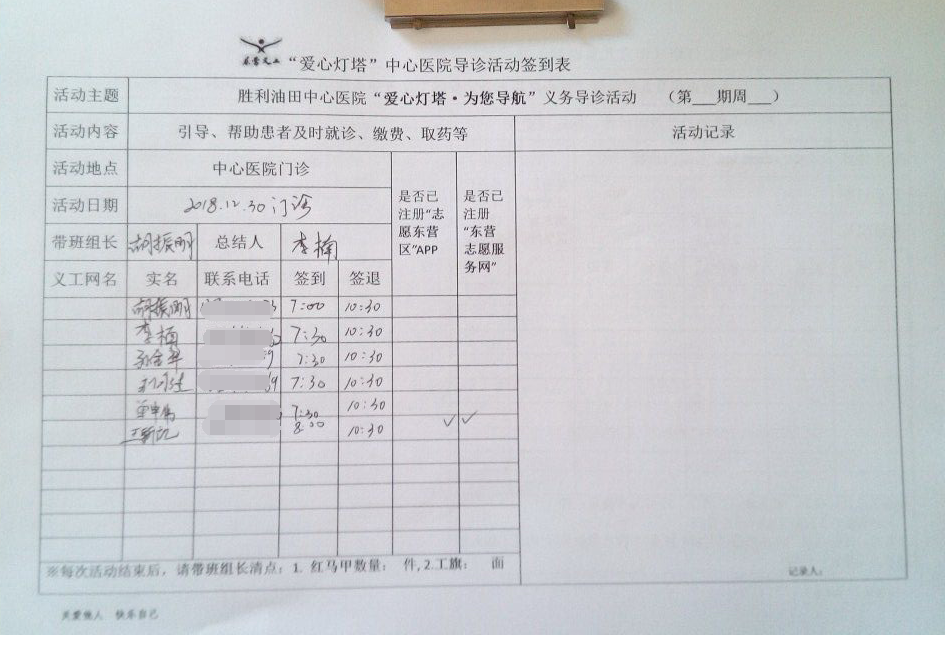 东营义工
“爱心灯塔”中心医院导诊活动签到表
活动主题 胜利油田中心医院“爱心灯塔·为您导航”义务导诊活动 （第___期周___）
活动内容 引导、帮助患者及时就诊、缴费、取药等 活动记录
活动地点 中心医院门诊
活动日期 2018.12.30 门诊
是否已注册“志愿东营区”APP
是否已注册“东营志愿服务网”
带班组长 胡振刚 总结人 李楠
义工网名 实名 联系电话 签到 签退
胡振刚 7:00 10:30
李楠 7:30 10:30
7:30 10:30
7:30 10:30
7:30 10:30
8:00 10:30 ✓ ✓
※每次活动结束后，请带班组长清点：1. 红马甲数量： 件, 2.工旗： 面
记录人：
关爱他人 快乐自己